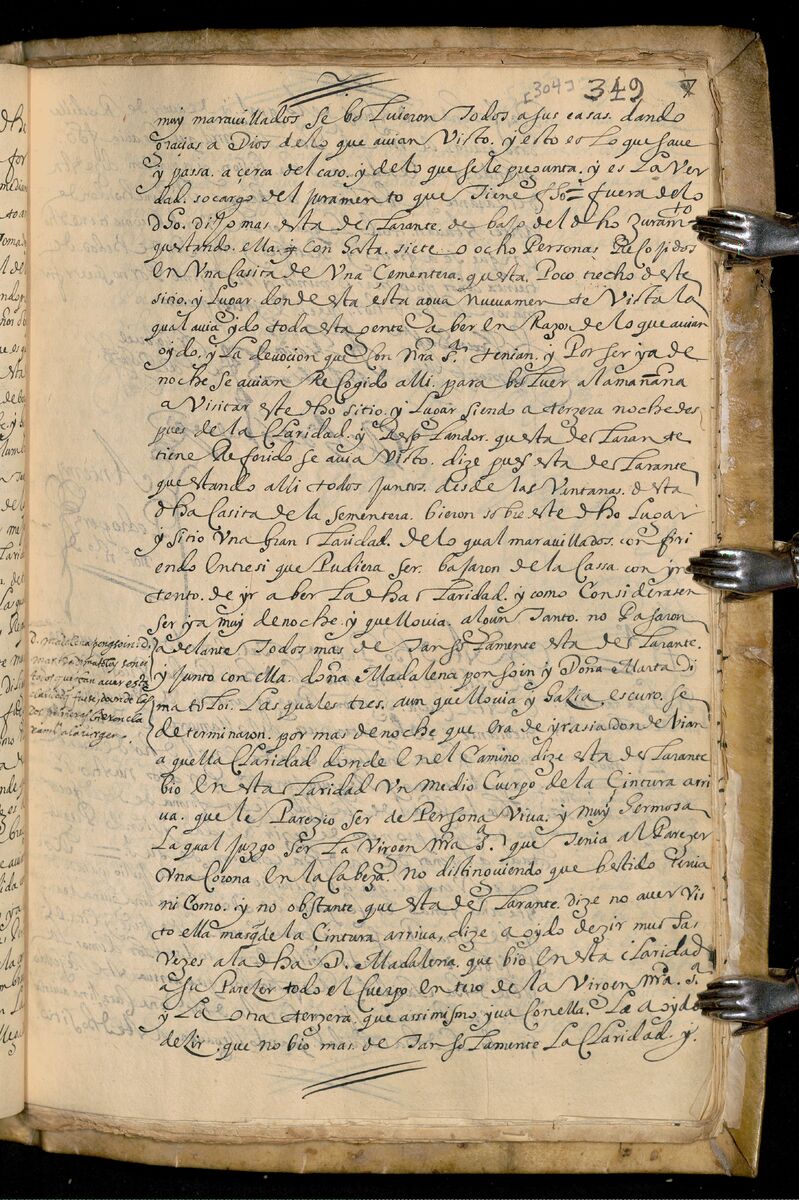 [304] 349
muy maravillados se bolvieron todos a sus casas. dando
gracias a Dios de lo que avian visto. y esto es lo que save
y passa. a cerca del caso. y de lo que se le pregunta. y es la ver
dad. so cargo del juramento que tiene fho = fuera de lo
dho. dijo mas esta declarante. de bajo del dho juramto
questando. ella. y con hasta. siete. o ocho Personas Recojidos
en Una Casita de Una Cementera. questa. Poco trecho deste
sitio. y Lugar donde esta esta agua nuevamente Vista la
qual avia ydo toda esta gente a ber en Razon de lo que avian
oydo. y La devocion que con nra sra. tenian. y Por ser ya de
noche se avian Recogido alli. para bolver a la mañana
a Visitar este dho sitio. y Lugar siendo a terzera noche des
pues de la Claridad. y Resplandor. questa declarante
tiene Referido se avia Visto. dize pues esta declarante
questando alli todos Juntos. desde las Ventanas. desta
dha Casita de la sementera. bieron sobre este dho Lugar
y sitio Una gran claridad. de lo qual maravillados. confiri
endo entre si que Pudiera ser. bajaron de la Cassa. con yn
tento. de yr a ber La dha claridad. y como Considerasen
ser ya muy de noche. y que llovia. algun tanto. no Pasaron
adelante todos mas de tan solamente esta declarante.
y junto con ella. doña Madalena ponsoin y Doña Marta di
matoloi. Las quales tres. aun que llovia y hazia. escuro. se
determinaron. por mas de noche que era de yr asia donde vian
aquella Claridad donde en el Camino. dize esta declarante
bio en esta claridad Un medio Cuerpo de la Cintura arri
va. que le Parezio ser de Persona Viva. y muy hermosa
La qual juzgo ser La Virgen nra sra. que tenia al Parezer
Una Corona en la Cabeza. no distinguiendo que bestido tenia
ni Como. y no obstante que esta declarante. dize no aver vis
to ella mas q de la Cintura arriva, dize a oydo dezir muchas
Vezes a la dha D. Madalena. que bio en esta claridad
a su Parezer todo el Cuerpo entero de la Virgen nra. sra.
y La otra terzera. que assimismo yva Con ella. La a oydo
dezir. que no bio mas. de tan solamente La Claridad. y.
D. madalena ponsoin i D.
marta dimatoloi son